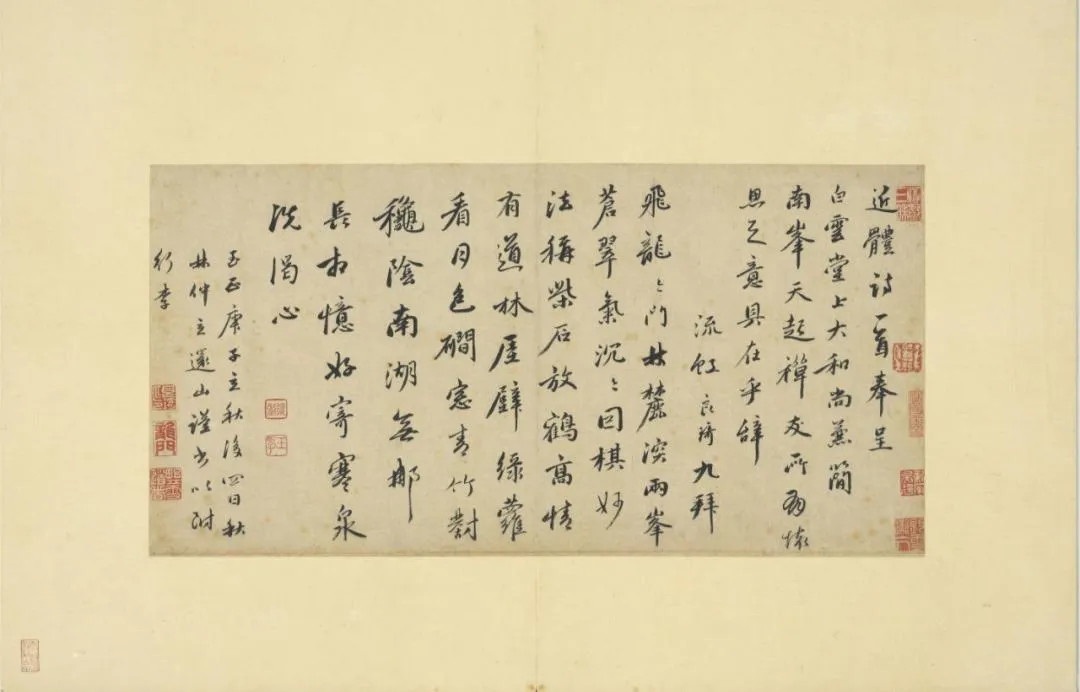 近體詩一首奉呈
白雲堂上大和尚兼簡
南峯天起禪友所有懷
思之意具在乎辭
流虹良琦九拜
飛龍〻門林麓深兩峯
蒼翠氣沉〻因棋妙
法稱柴石放鶴高情
有道林屋壁綠蘿
看月色磵窓青竹對
穐陰南湖無那
長相憶好寄寒泉
洗渴心
至正庚子立秋後四日秋
林仲立還山謹書以附
行李